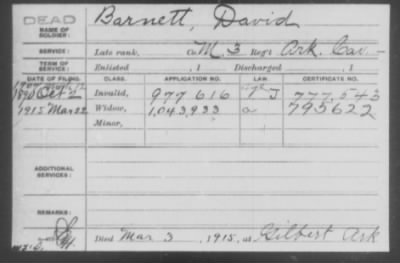 DEAD
NAME OF SOLDIER:
Barnett, David
SERVICE:
Late rank, Co. M, 3 Reg't Ark. Cav -
TERM OF SERVICE:
Enlisted , 1 Discharged , 1
DATE OF FILING. CLASS. APPLICATION NO. LAW. CERTIFICATE NO.
1890 Oct 2 Invalid, 977616 J 777,543
1915 Mar 22 Widow, 1,043,933 a 795622
Minor,
ADDITIONAL SERVICES:
REMARKS:
Died Mar 3, 1915, at Gilbert Ark